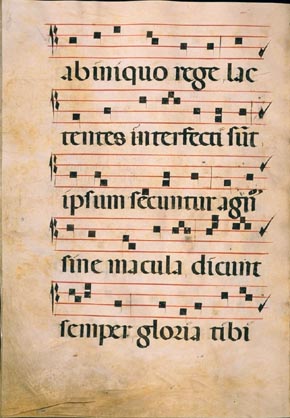 ab iniquo rege lac
tentes interfecti sūt
ipsum secuntur agnū
sine macula dicunt
semper gloria tibi